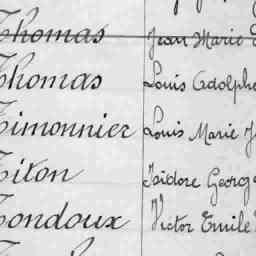 Thomas Jean Marie
Thomas Louis Adolphe
Timonnier Louis Marie J
Titon Isidore Georg
Tondoux Victor Emile